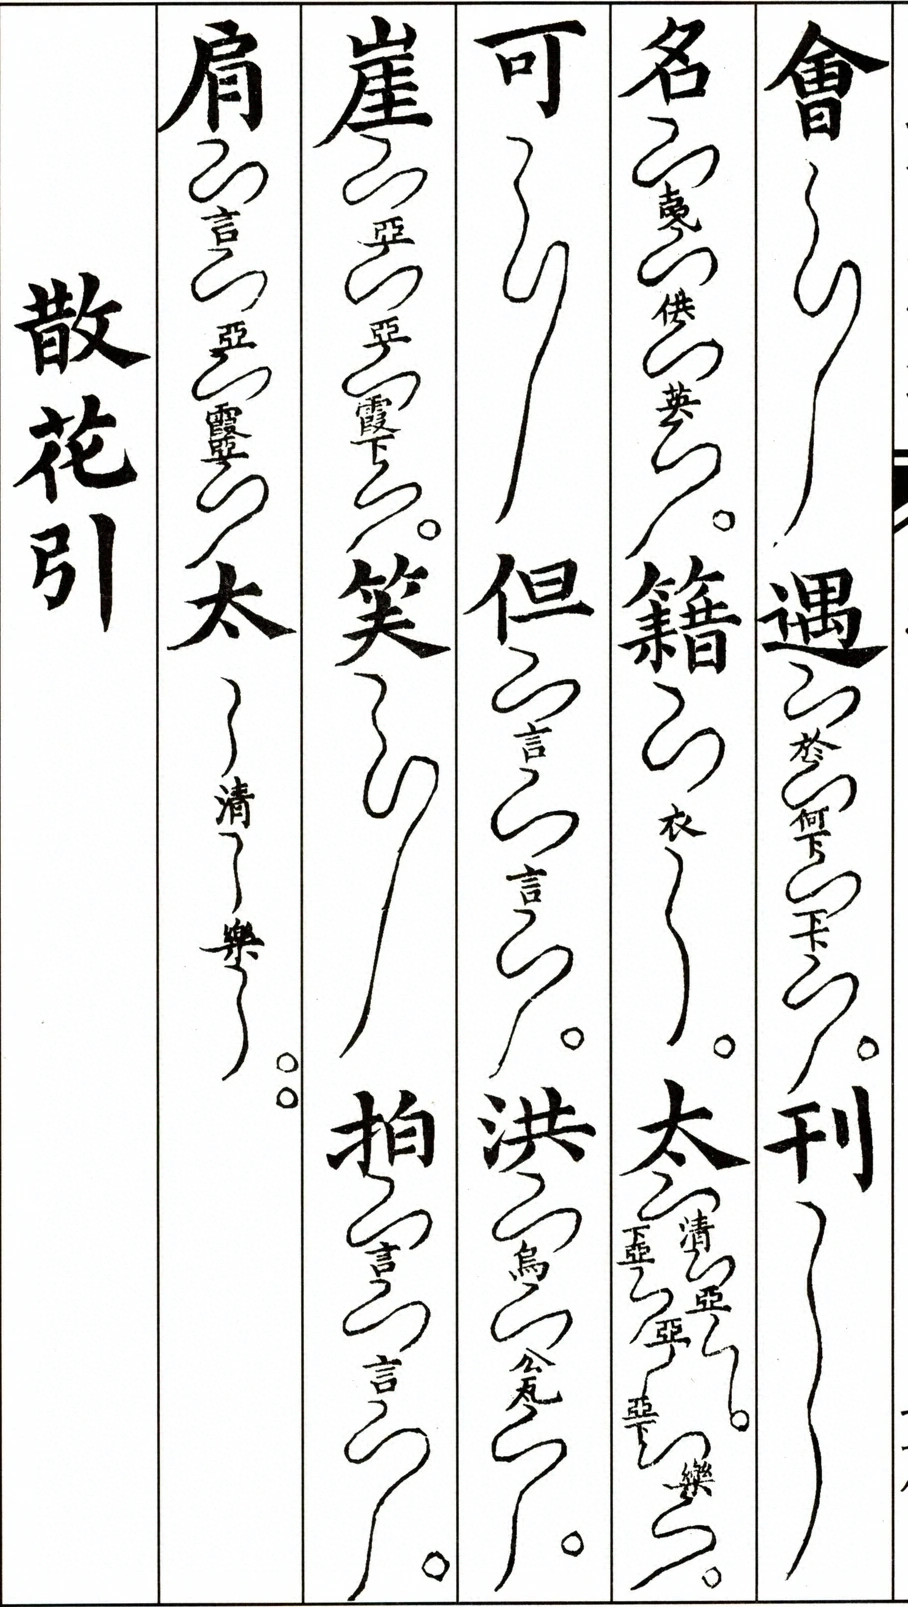 會遇於何下下卡刊
名夷供英籍衣太清亞下亞亞亞下樂
可但言言洪烏瓮
崖亞亞霞下笑拍言言
肩言亞霞亞太清樂
散花引